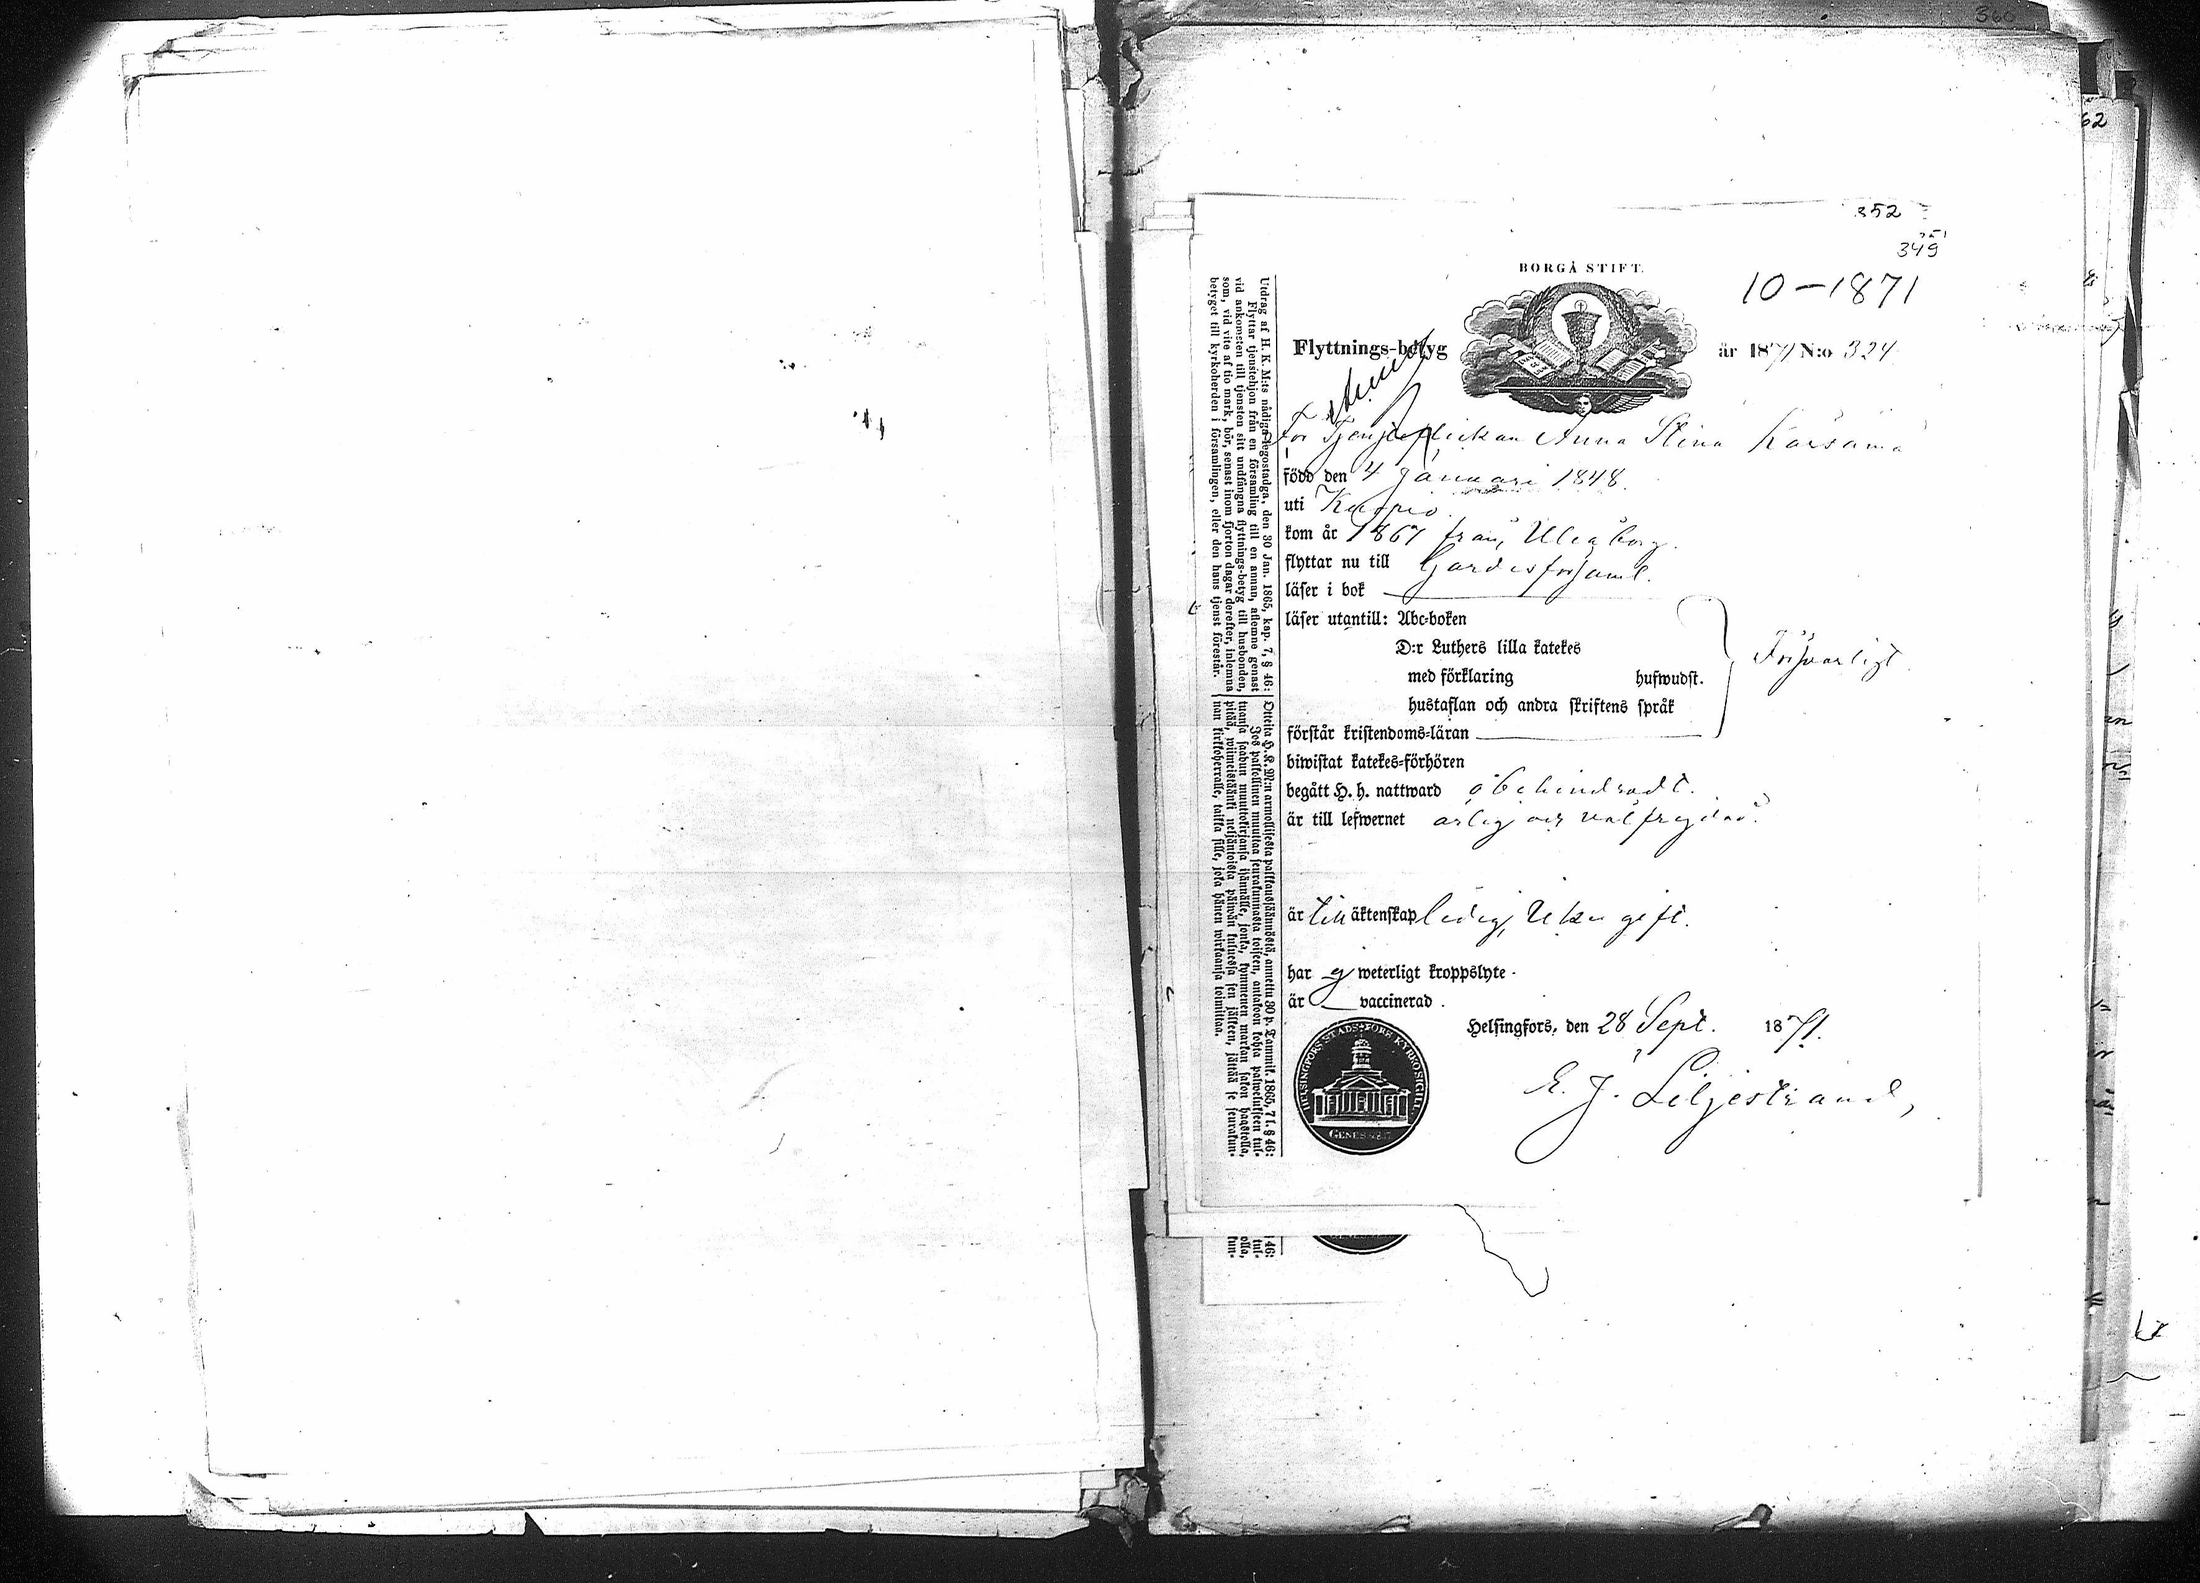 360
62
352
349
BORGÅ STIFT.
10-1871
Flyttnings-betyg
år 1871 N:o 324
För Tjensteflickan Anna Stina Karsama
född den 4 Januari 1848.
uti Kuopio.
kom år 1867 från Uleåborg.
flyttar nu till Gardesförsaml.
läser i bok
läser utantill: Abc-boken
D:r Luthers lilla katekes
med förklaring hufwudst.
hustaflan och andra skriftens språk
Försvarligt
förstår kristendoms-läran
biwistat katekes-förhören
begått H. h. nattward obehindradt.
är till lefwernet ärlig och välfrejdad.
är till äktenskap ledig, gift.
har ej weterligt kroppslyte.
är vaccinerad.
Helsingfors, den 28 Sept. 1871.
E. J. Liljestrand,
HELSINGFORS STADS FÖRS. KYRKOSIGILL
Utdrag af H. K. M:ts nådiga legostadga, den 30 Jan. 1865, kap. 7, § 46:
Flyttar tjenstehjon från en församling till en annan, aflemne genast
vid ankomsten till tjensten sitt undfångna flyttnings-betyg till husbonden,
som, vid vite af tio mark, bör, senast inom fjorton dagar derefter, inlemna
betyget till kyrkoherden i församlingen, eller den hans tjenst förestår.
Otteita H. K. M:n armollisesta palkkaussäännöstä, annettu 30 p. Tammik. 1865, 7 l. § 46:
Jos palkollinen muuttaa seurakunnasta toiseen, antakoon kohta palwelukseen tul-
tuansa saadun muuttokirjansa isännälle, jonka, kymmenen markan sakon haastolla,
pitää, wiimeistäänki neljäntoista päiwän kuluessa sen jälkeen, jättää se seurakun-
nan kirkkoherralle, taikka sille, joka hänen wirkaansa toimittaa.